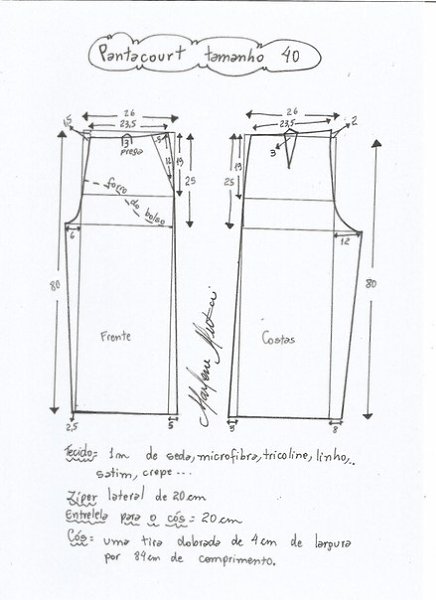 Pantacourt tamanho 40
26
23,5
1,5
3
prega
5
12
19
25
forro
do
bolso
6
80
Frente
2,5
5
26
23,5
2
3
19
25
12
80
Costas
3
8
Marlene Mukai
Tecido: 1m de seda, microfibra, tricoline, linho,..
satim, crepe...
Zíper lateral de 20cm
Entretela para o cós = 20cm
Cós: uma tira dobrada de 4cm de largura
por 84cm de comprimento.